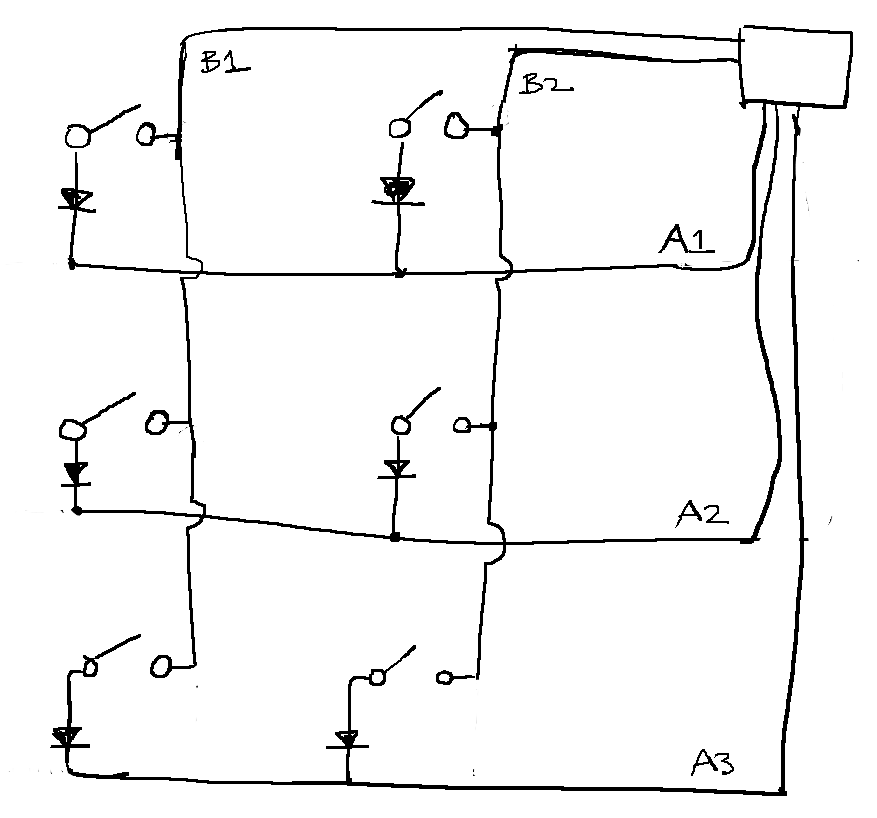 B1
B2
A1
A2
A3